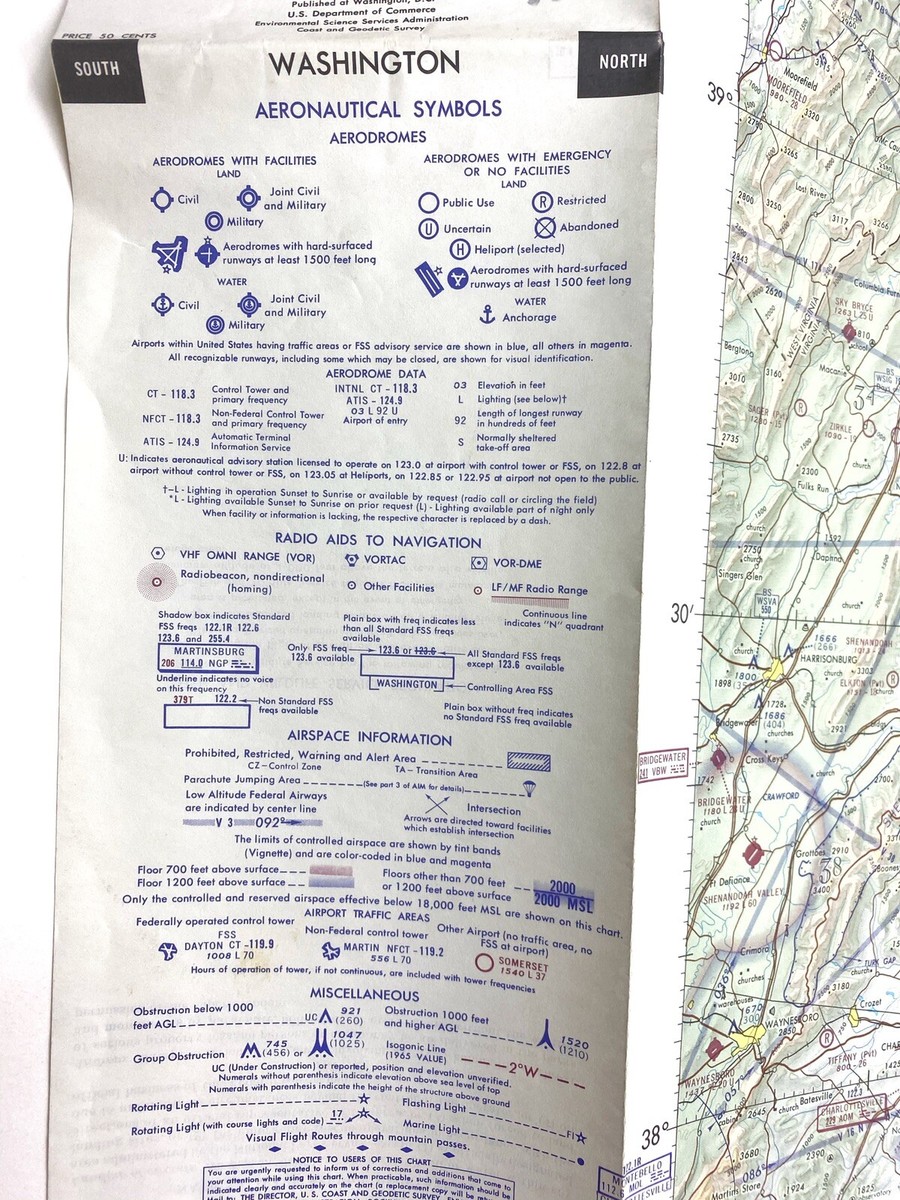 Published at Washington, D.C.
U.S. Department of Commerce
Environmental Science Services Administration
Coast and Geodetic Survey
PRICE 50 CENTS
SOUTH
WASHINGTON
NORTH
AERONAUTICAL SYMBOLS
AERODROMES
AERODROMES WITH FACILITIES
LAND
Civil
Joint Civil
and Military
Military
Aerodromes with hard-surfaced
runways at least 1500 feet long
WATER
Civil
Joint Civil
and Military
Military
AERODROMES WITH EMERGENCY
OR NO FACILITIES
LAND
Public Use
R Restricted
U Uncertain
Abandoned
H Heliport (selected)
Aerodromes with hard-surfaced
runways at least 1500 feet long
WATER
Anchorage
Airports within United States having traffic areas or FSS advisory service are shown in blue, all others in magenta.
All recognizable runways, including some which may be closed, are shown for visual identification.
AERODROME DATA
CT – 118.3
Control Tower and
primary frequency
NFCT – 118.3
Non-Federal Control Tower
and primary frequency
ATIS – 124.9
Automatic Terminal
Information Service
INTNL CT – 118.3
ATIS – 124.9
03 L 92 U
Airport of entry
03 Elevation in feet
L Lighting (see below)†
92 Length of longest runway
in hundreds of feet
S Normally sheltered
take-off area
U: Indicates aeronautical advisory station licensed to operate on 123.0 at airport with control tower or FSS, on 122.8 at
airport without control tower or FSS, on 123.05 at Heliports, on 122.85 or 122.95 at airport not open to the public.
†–L - Lighting in operation Sunset to Sunrise or available by request (radio call or circling the field)
*L - Lighting available Sunset to Sunrise on prior request (L) - Lighting available part of night only
When facility or information is lacking, the respective character is replaced by a dash.
RADIO AIDS TO NAVIGATION
VHF OMNI RANGE (VOR)
VORTAC
VOR-DME
Radiobeacon, nondirectional
(homing)
Other Facilities
LF/MF Radio Range
Continuous line
indicates "N" quadrant
Shadow box indicates Standard
FSS freqs 122.1R 122.6
123.6 and 255.4
MARTINSBURG
206 114.0 NGP
Underline indicates no voice
on this frequency
379T 122.2
Non Standard FSS
freqs available
Plain box with freq indicates less
than all Standard FSS freqs
available
Only FSS freq
123.6 available
123.6 or 123.6
All Standard FSS freqs
except 123.6 available
WASHINGTON
Controlling Area FSS
Plain box without freq indicates
no Standard FSS freqs available
AIRSPACE INFORMATION
Prohibited, Restricted, Warning and Alert Area
CZ – Control Zone
TA – Transition Area
Parachute Jumping Area
(See part 3 of AIM for details)
Low Altitude Federal Airways
are indicated by center line
V 3 092°
Intersection
Arrows are directed toward facilities
which establish intersection
The limits of controlled airspace are shown by tint bands
(Vignette) and are color-coded in blue and magenta
Floor 700 feet above surface
Floor 1200 feet above surface
Floors other than 700 feet
or 1200 feet above surface
2000
2000 MSL
Only the controlled and reserved airspace effective below 18,000 feet MSL are shown on this chart.
AIRPORT TRAFFIC AREAS
Federally operated control tower
FSS
DAYTON CT –119.9
1008 L 70
Non-Federal control tower
MARTIN NFCT –119.2
556 L 70
Other Airport (no traffic area, no
FSS at airport)
SOMERSET
1540 L 37
Hours of operation of tower, if not continuous, are included with tower frequencies
MISCELLANEOUS
Obstruction below 1000
feet AGL
UC 921
(260)
Obstruction 1000 feet
and higher AGL
1520
(1210)
Group Obstruction
745
(456) or
1047
(1025)
Isogonic Line
(1965 VALUE)
2°W
UC (Under Construction) or reported, position and elevation unverified.
Numerals without parenthesis indicate elevation above sea level of top
Numerals with parenthesis indicate the height of the structure above ground
Rotating Light
Flashing Light
Fl
Rotating Light (with course lights and code)
17
Marine Light
Visual Flight Routes through mountain passes.
NOTICE TO USERS OF THIS CHART
You are urgently requested to inform us of corrections and additions that come to
your attention while using this chart. When practicable, such information should be
indicated clearly and accurately on the chart (a replacement copy will be
THE DIRECTOR, U. S. COAST AND GEODETIC SURVEY
39°
Moorefield
MOOREFIELD
980 - 28
3320
2780
3265
Lost River
2800
3250
3117
3266
2843
2620
Columbia Furn
WEST VIRGINIA
VIRGINIA
SKY BRYCE
1263 L 25 U
810
school
Bergton
3160
3010
Macanie
R
ZIRKLE
1090 - 19
2735
2300
church
Fulks Run
1500
church
1592
2750
church
Daphna
Singers Glen
BS
WSVA
550
30'
church
1666
(266)
SHENANDOAH
HARRISONBURG
1800
1898
3303
church
1728
1686
(404)
Bridgewater
churches
2921
BRIDGEWATER
241 VBW
Cross Keys
1742
church
2700
BRIDGEWATER
church
CRAWFORD
Grottoes
2910
Ft Defiance
3400
SHENANDOAH VALLEY
1192 L 60
Crimora
churches
3180
warehouses
church
1670
Crozet
WAYNESBORO
2850
R
TIFFANY (Pvt)
800 - 26
WAYNESBORO
Batesville
church
122.3
CHARLOTTESVILLE
2645
38°
V 16 N
2390
3680
086°
1924
Martins Store